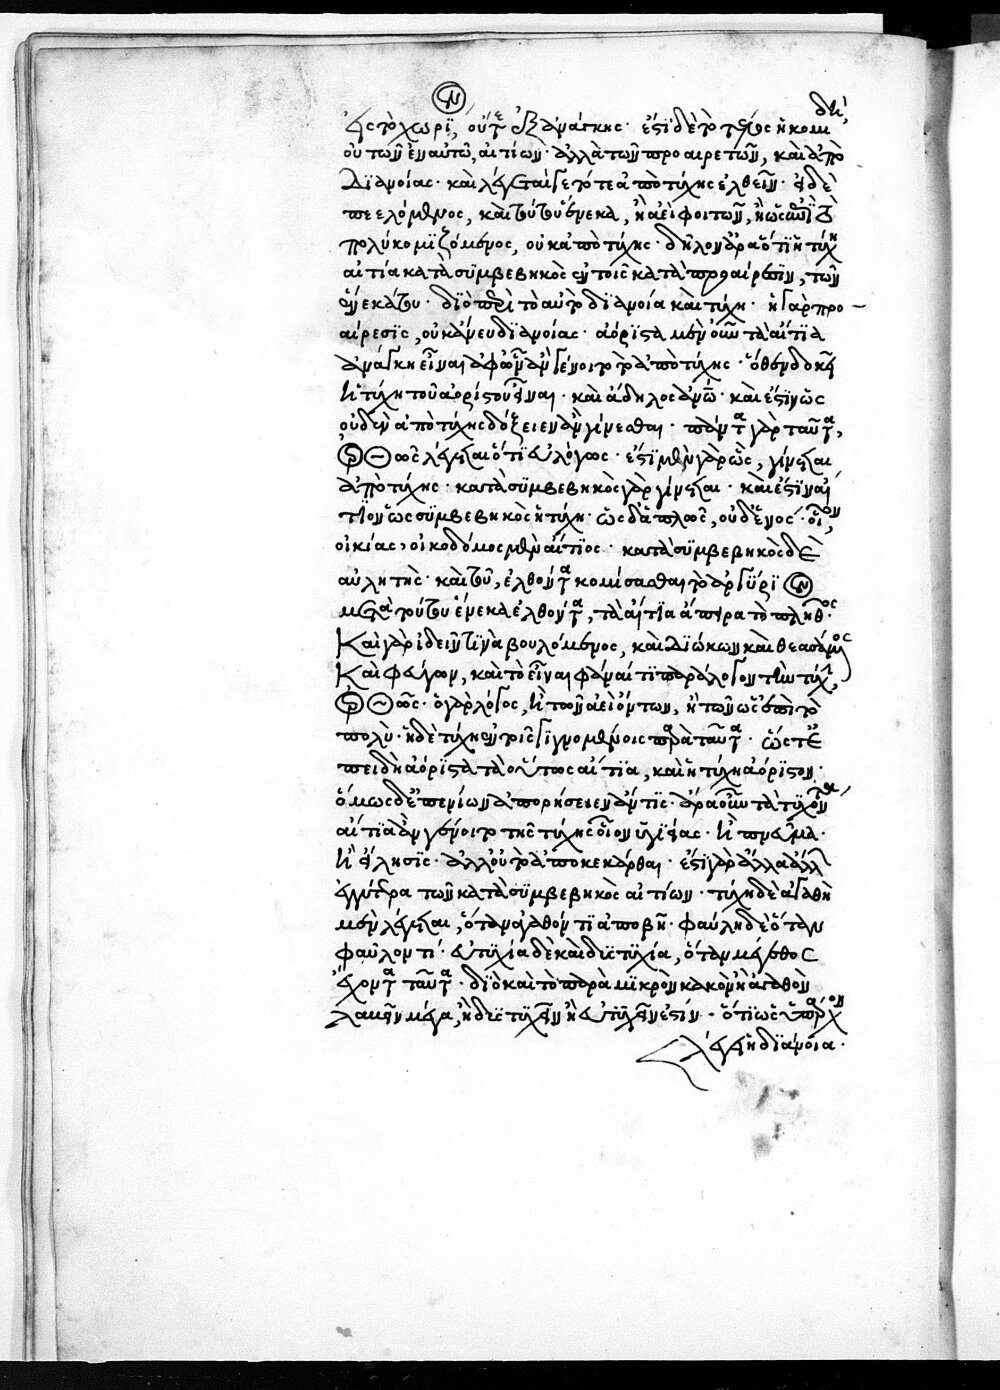 εἰς τὸ χωρί, οὔτε ἐξ ἀνάγκης· ἔστι δὲ τὸ τέλος ἡ κομιδή,
οὐ τῶν ἐν αὐτῶ αἰτίων· ἀλλὰ τῶν προαιρετῶν, καὶ ἀπὸ
διανοίας· καὶ λέγεται γε τότε ἀπὸ τύχης ἐλθεῖν· εἰ δὲ
προελόμενος, καὶ τούτου ἕνεκα, ἢ ἀεὶ φοιτῶν, ἢ ὡς ἐπὶ τὸ
πολὺ κομιζόμενος, οὐκ ἀπὸ τύχης· δῆλον ἄρα ὅτι ἡ τύχη
αἰτία κατὰ συμβεβηκὸς ἐν τοῖς κατὰ προαίρεσιν, τῶν
ἕνεκά του· διὸ περὶ τὸ αὐτὸ διάνοια καὶ τύχη· ἡ γὰρ προ-
αίρεσις, οὐκ ἄνευ διανοίας· ἀόριστα μὲν οὖν τὰ αἴτια
ἀνάγκη εἶναι ἀφ' ὧν ἂν γένοιτο τὸ ἀπὸ τύχης· ὅθεν δοκεῖ
ἡ τύχη τοῦ ἀορίστου εἶναι· καὶ ἄδηλος ἀνω· καὶ ἔστιν ὡς
οὐδὲν ἀπὸ τύχης δόξειεν ἂν γίνεσθαι· πάντα γὰρ ταῦτα,
ὀρθῶς λέγεται ὅτι εὐλόγως· ἔστι μὲν γὰρ ὡς, γίνεται
ἀπὸ τύχης· κατὰ συμβεβηκὸς γὰρ γίνεται· καὶ ἔστιν αἴ
τιον ὡς συμβεβηκὸς ἡ τύχη· ὡς δ' ἁπλῶς, οὐδενός· οἷον,
οἰκίας, οἰκοδόμος μὲν αἴτιος· κατὰ συμβεβηκὸς δὲ
αὐλητής· καὶ τοῦ, ἐλθόντα κομίσασθαι τὸ ἀργύρι
μὴ τούτου ἕνεκα ἐλθόντα, τὰ αἴτια ἄπειρα τὸ πλῆθος·
Καὶ γὰρ ἰδεῖν τινὰ βουλόμενος, καὶ διώκων καὶ θεασόμενος
Καὶ φεύγων, καὶ τὸ εἶναι φάναι τι παράλογον τὴν τύχην,
ὀρθῶς· ὁ γὰρ λόγος, ἢ τῶν ἀεὶ ὄντων, ἢ τῶν ὡς ἐπὶ τὸ
πολύ· ἡ δὲ τύχη ἐν τοῖς γιγνομένοις παρὰ ταῦτα· ὥστ' ἐ
πειδὴ ἀόριστα τὰ οὕτως αἴτια, καὶ ἡ τύχη ἀόριστον·
ὅμως δ' ἐπ' ἐνίων ἀπορήσειεν ἄν τις· ἆρα οὖν τὰ τυχόντα
αἴτια ἂν γένοιτο τῆς τύχης οἷον ὑγιείας· ἢ πνεῦμα·
ἢ εἵλησις· ἀλλ' οὐ τὸ ἀποκεκάρθαι· ἔστι γὰρ ἄλλα ἄλλων
ἐγγύτερα τῶν κατὰ συμβεβηκὸς αἰτίων· τύχη δὲ ἀγαθὴ
μὲν λέγεται, ὅταν ἀγαθόν τι ἀποβῆ· φαύλη δὲ ὅταν
φαῦλόν τι· εὐτυχία δὲ καὶ δυστυχία, ὅταν μέγεθος
ἔχοντα ταῦτα· διὸ καὶ τὸ παρὰ μικρὸν κακὸν ἢ ἀγαθὸν
λαβεῖν μέγα, ἢ δυστυχεῖν ἢ εὐτυχεῖν ἐστίν· ὅτι ὡς ὑπάρχον
λέγει ἡ διάνοια·